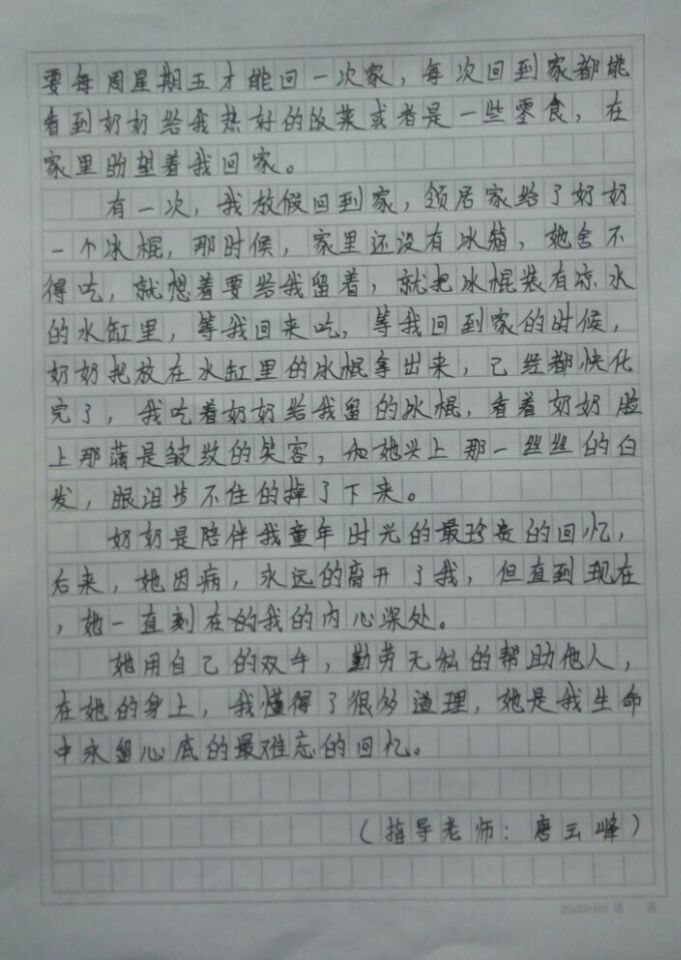 要每周星期五才能回一次家，每次回到家都能
看到奶奶给我热好的饭菜或者是一些零食，在
家里盼望着我回家。
有一次，我放假回到家，领居家给了奶奶
一个冰棍，那时候，家里还没有冰箱，她舍不
得吃，就想着要给我留着，就把冰棍装有凉水
的水缸里，等我回来吃，等我回到家的时候，
奶奶把放在水缸里的冰棍拿出来，已经都快化
完了，我吃着奶奶给我留的冰棍，看着奶奶脸
上那满是皱纹的笑容，和她头上那一丝丝的白
发，眼泪步不住的掉了下来。
奶奶是陪伴我童年时光的最珍贵的回忆，
后来，她因病，永远的离开了我，但直到现在
，她一直刻在的我的内心深处。
她用自己的双手，勤劳无私的帮助他人，
在她的身上，我懂得了很多道理，她是我生命
中永留心底的最难忘的回忆。
（指导老师：唐云峰）
20x20=400 第 页